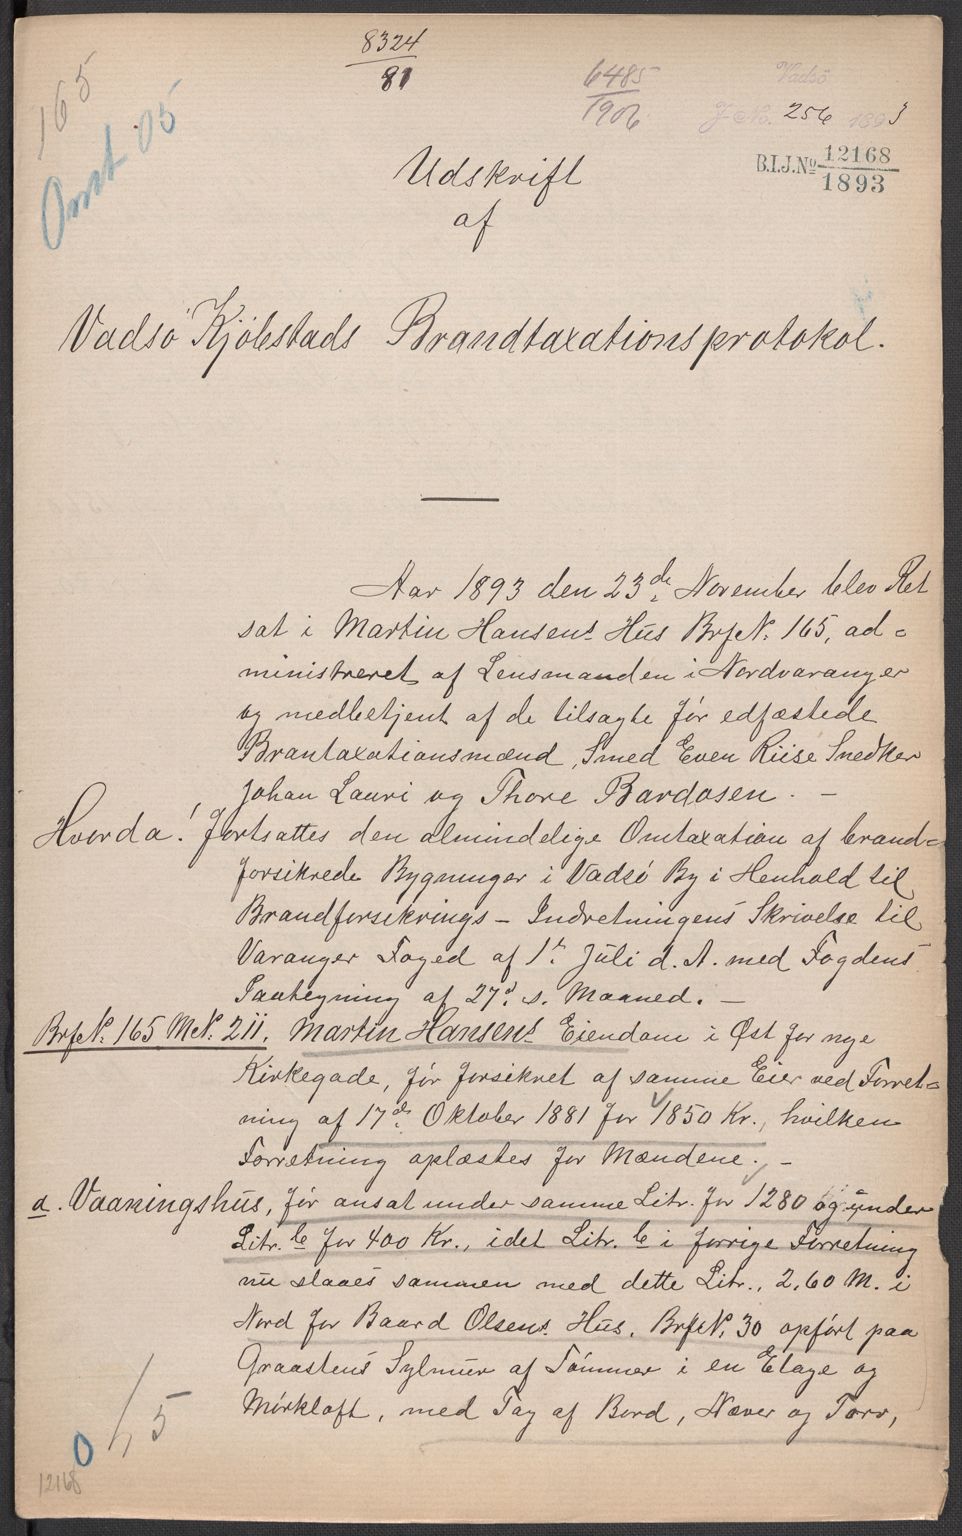 165
Omt 05
8324
81
6485
1906
Vadsö
J.No. 256 1893
B.I.J.No 12168
1893
Udskrift
af
Vadsö Kjöbstads Brandtaxationsprotokol.
Aar 1893 den 23de November blev Ret
sat i Martin Hansens Hus BrfN. 165, ad-
ministreret af Lensmanden i Nordvaranger
og medbetjent af de tilsagte för edfæstede
Brantaxationsmænd, Smed Even Riise Snedker
Johan Lauri og Thore Bardosen. –
Hvorda! fortsattes den almindelige Omtaxation af brand-
forsikrede Bygninger i Vadsö By i Henhold til
Brandforsikrings-Indretningens Skrivelse til
Varanger Foged af 1ste Juli d. A. med Fogdens
Paategning af 27d. s. Maaned. –
BrfN. 165 MN. 211. Martin Hansens Eiendom i Øst for nye
Kirkegade, för forsikret af samme Eier ved Forret-
ning af 17de Oktober 1881 for 1850 Kr., hvilken
Forretning oplæstes for Mændene. –
a. Vaaningshus, för ansat under samme Litr. for 1280 og under
Litr. b for 400 Kr., idet Litr. b i forrige Forretning
nu slaaes sammen med dette Litr., 2,60 M. i
Nord for Baard Olsens Hus, BrfN. 30 opfört paa
Graastens Sylmur af Tömmer i en Etage og
Mörkloft, med Tag af Bord, Næver og Torv,
0/5
12168